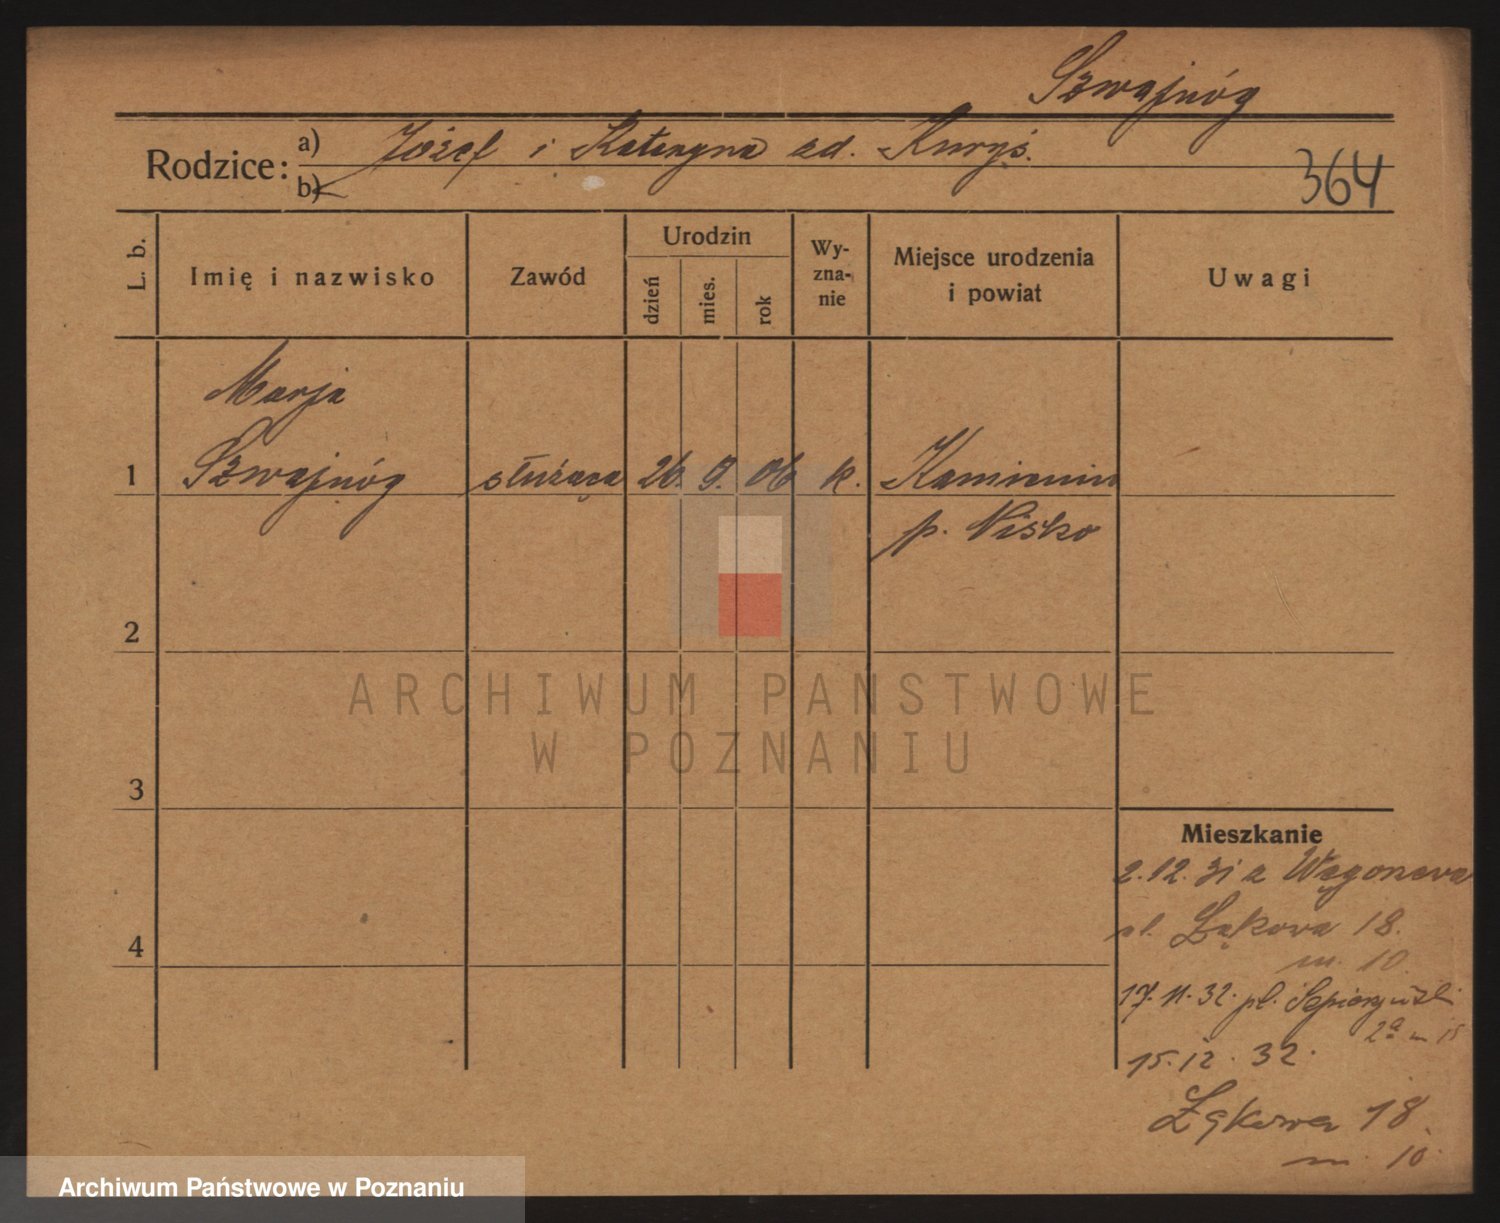 Szwajnóg
Rodzice: a) Józef i Katarzyna zd. Kuryś.
b)
364
L. b.
Imię i nazwisko
Zawód
Urodzin
dzień
mies.
rok
Wy-
zna-
nie
Miejsce urodzenia
i powiat
Uwagi
Marja
1 Szwajnóg służąca 26. 9. 06 k. Kamieniu
p. Nisko
2
ARCHIWUM PAŃSTWOWE
W POZNANIU
3
Mieszkanie
2.12.31 z Wągrowca
ul. Łąkowa 18.
4
m. 10
17.11.32. pl. Sapieżyński
2a m 15
15.12.32.
Łąkowa 18.
m. 10.
Archiwum Państwowe w Poznaniu